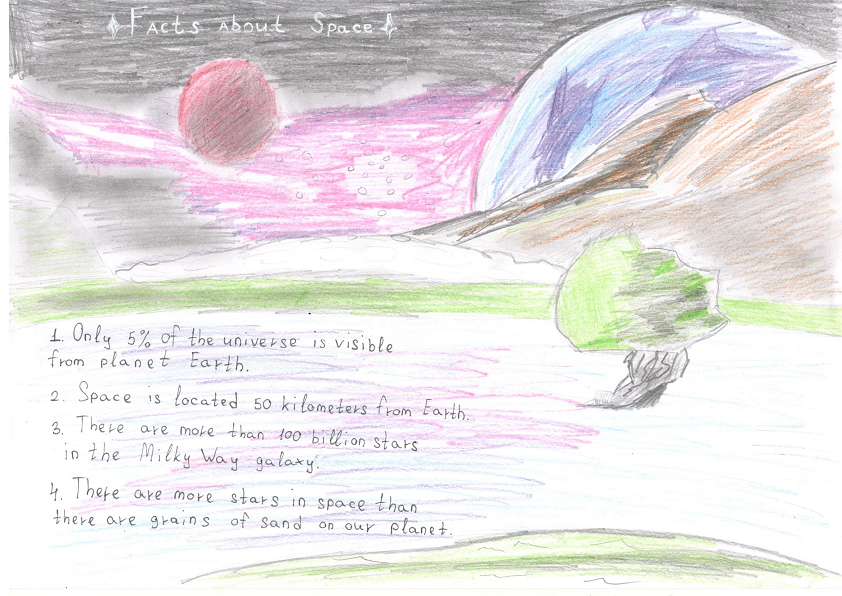 Facts about Space
1. Only 5% of the universe is visible
from planet Earth.
2. Space is located 50 kilometers from Earth.
3. There are more than 100 billion stars
in the Milky Way galaxy.
4. There are more stars in space than
there are grains of sand on our planet.